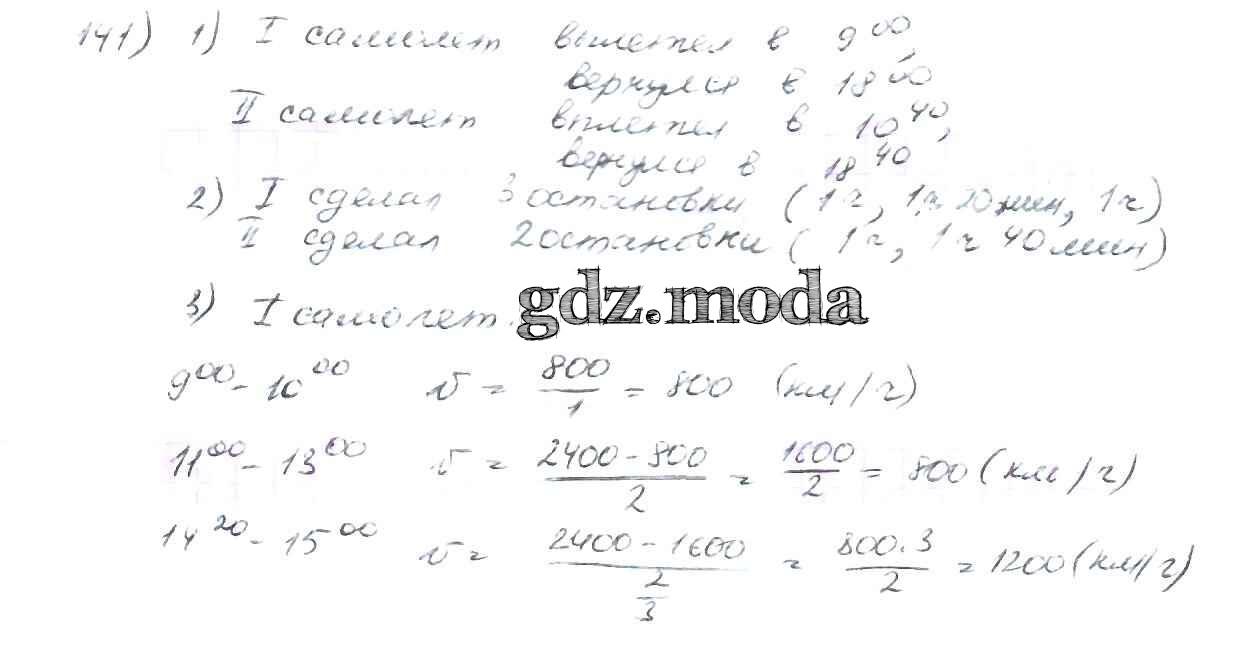 141) 1) I самолет вылетел в 9⁰⁰,
вернулся в 18⁰⁰
II самолет вылетел в 10⁴⁰,
вернулся в 18⁴⁰
2) I сделал 3 остановки (1ч, 1ч 20 мин, 1ч)
II сделал 2 остановки (1ч, 1ч 40 мин)
3) I самолет.
gdz.moda
9⁰⁰ - 10⁰⁰ v = 800/1 = 800 (км/ч)
11⁰⁰ - 13⁰⁰ v = (2400 - 800)/2 = 1600/2 = 800 (км/ч)
14²⁰ - 15⁰⁰ v = (2400 - 1600)/(2/3) = (800.3)/2 = 1200 (км/ч)